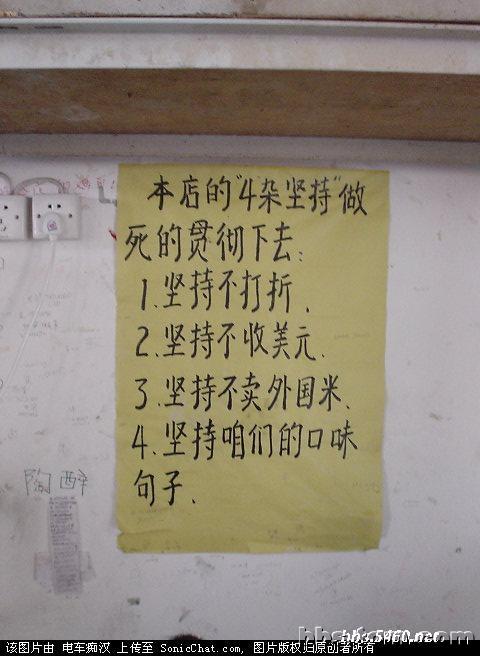 本店的"4杂坚持"做
死的贯彻下去:
1.坚持不打折.
2.坚持不收美元.
3.坚持不卖外国米.
4.坚持咱们的口味
句子.
陶醉
bbs.5460.net
该图片由 电车痴汉 上传至 SonicChat.com, 图片版权归原创者所有